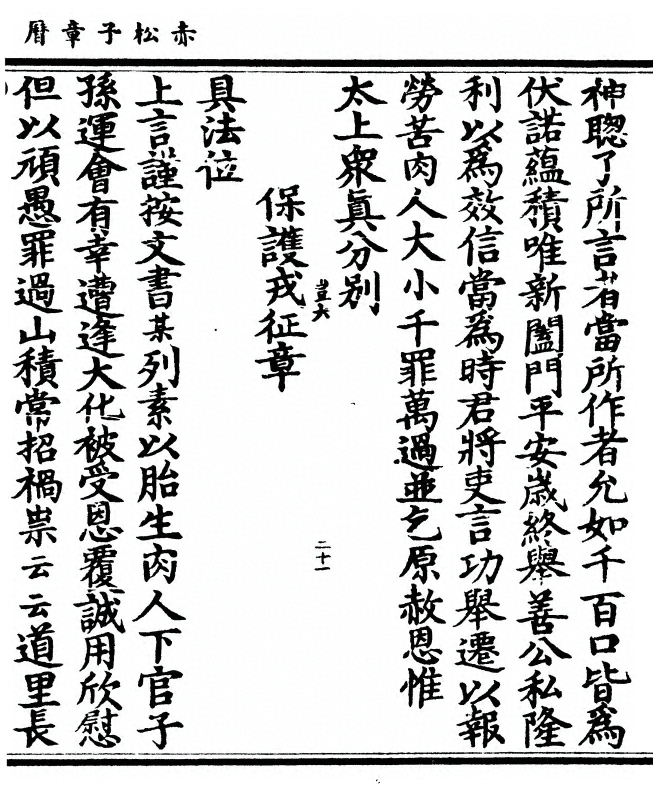 赤松子章曆
神聰了所言者當所作者允如千百口皆爲
伏諾蘊積唯新闔門平安歲終舉善公私隆
利以爲效信當爲時君將吏言功舉遷以報
勞苦肉人大小千罪萬過並乞原赦恩惟
太上衆眞分別
豈大
二十一
保護戎征章
具法位
上言謹按文書某列素以胎生肉人下官子
孫運會有幸遭逢大化被受恩覆誠用欣慰
但以頑愚罪過山積常招禍祟云云道里長